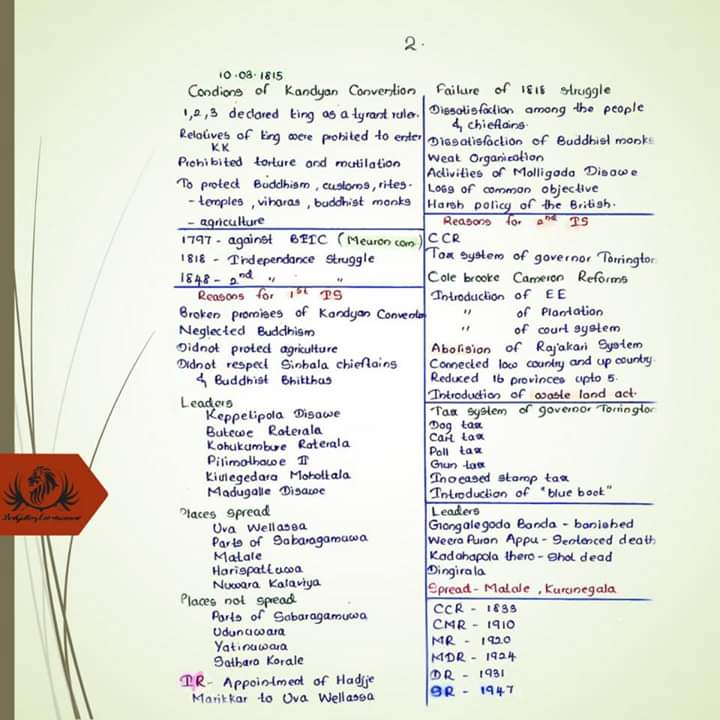 2.
10.03.1815
Condions of Kandyan Convention
1,2,3 declared king as a tyrant ruler.
Relatives of king were prohited to enter
KK
Prohibited torture and mutilation
To protect Buddhism, customs, rites.
- temples, viharas, buddhist monks
- agriculture
1797 - against BEIC (Meuron com)
1818 - Independance struggle
1848 - 2nd " "
Reasons for 1st IS
Broken promises of Kandyan Convento
Neglected Buddhism
Didnot protect agriculture
Didnot respect Sinhala chieftains
& Buddhist Bhikthus
Leaders
Keppelipola Disawe
Butewe Raterala
Kohukumbure Raterala
Pilimathawe II
Kiulegedara Mohottala
Madugalle Disawe
Places spread
Uva Wellassa
Parts of Sabaragamuwa
Matale
Harispattuwa
Nuwara Kalaviya
Places not spread
Parts of Sabaragamuwa
Udunuwara
Yatinuwara
Sathara Korale
IR - Appointment of Hadjje
Marikkar to Uva Wellassa
Failure of 1818 struggle
Dissatisfaction among the people
& chieftains.
Dissatisfaction of Buddhist monks
Weak Organization
Activities of Molligoda Disawe
Loss of common objective
Harsh policy of the British.
Reasons for 2nd IS
CCR
Tax system of governor Torrington
Cole brooke Cameron Reforms
Introduction of EE
" of Plantation
" of court system
Abolision of Rajakari System
Connected low country and up country.
Reduced 16 provinces upto 5.
Introduction of waste land act.
Tax system of governor Torrington
Dog tax
Cart tax
Poll tax
Gun tax
Increased stamp tax
Introduction of "blue book"
Leaders
Gongalegoda Banda - banished
Weera Puran Appu - Sentenced death
Kadahapola thero - Shot dead
Dingirala
Spread - Matale, Kurunegala
CCR - 1833
CMR - 1910
MR - 1920
MDR - 1924
DR - 1931
SR - 1947